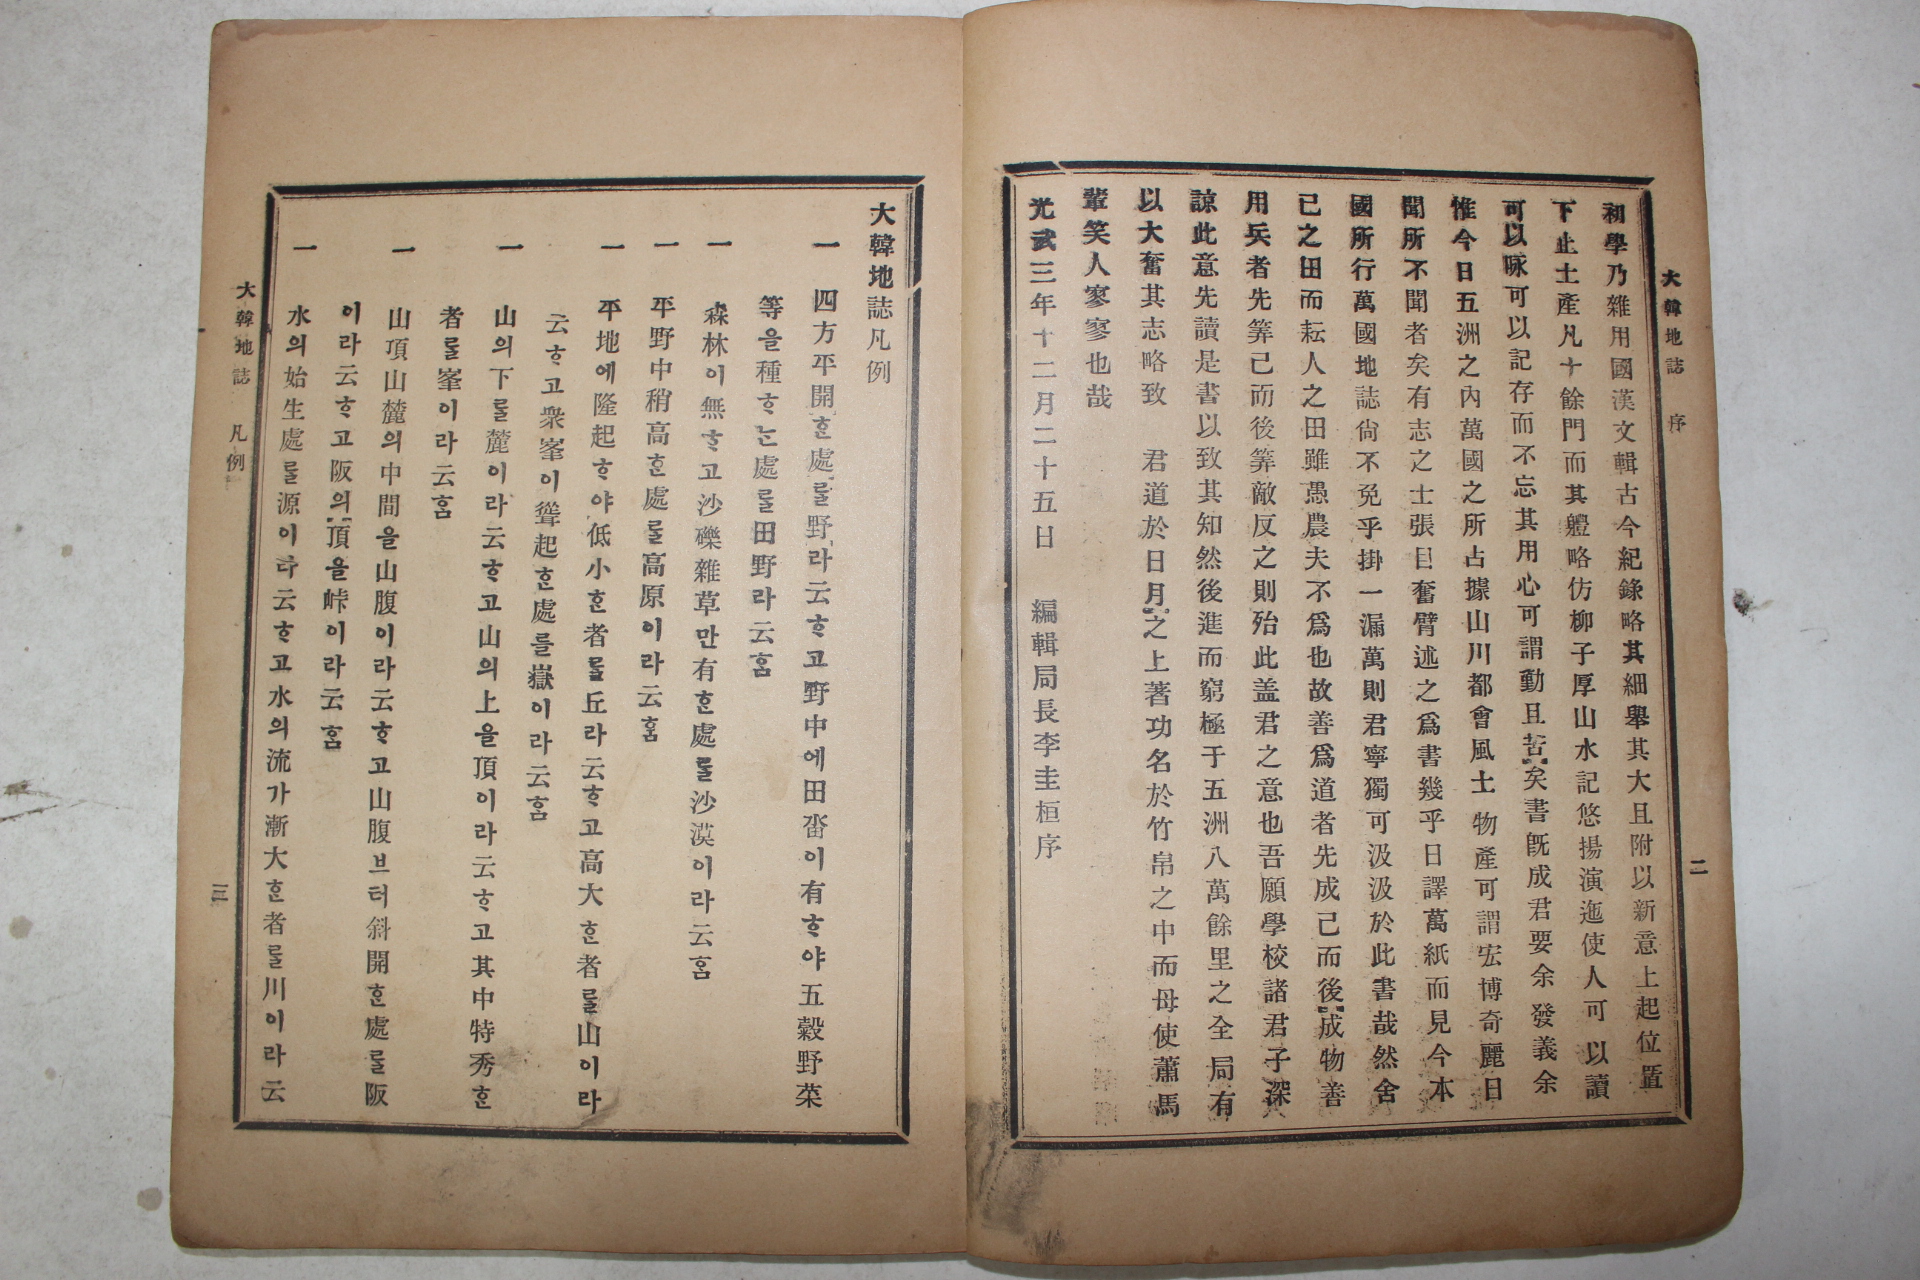 大韓地誌 序 二
初學乃雜用國漢文輯古今紀錄略其細舉其大且附以新意上起位置
下止土產凡十餘門而其軆略仿柳子厚山水記悠揚演迤使人可以讀
可以咏可以記存而不忘其用心可謂勤且苦矣書旣成君要余發義余
惟今日五洲之內萬國之所占據山川都會風土物產可謂宏博奇麗日
聞所不聞者矣有志之士張目奮臂述之爲書幾乎日譯萬紙而見今本
國所行萬國地誌尙不免乎掛一漏萬則君寧獨可汲汲於此書哉然舍
己之田而耘人之田雖愚農夫不爲也故善爲道者先成己而後成物善
用兵者先筭己而後筭敵反之則殆此盖君之意也吾願學校諸君子深
諒此意先讀是書以致其知然後進而窮極于五洲八萬餘里之全局有
以大奮其志略致 君道於日月之上著功名於竹帛之中而母使蕭馬
輩笑人寥寥也哉
光武三年十二月二十五日 編輯局長李圭桓序
大韓地誌凡例
一 四方平開ᄒᆞᆫ處ᄅᆞᆯ野라云ᄒᆞ고野中에田畓이有ᄒᆞ야五穀野菜
等을種ᄒᆞᄂᆞᆫ處ᄅᆞᆯ田野라云홈
一 森林이無ᄒᆞ고沙礫雜草만有ᄒᆞᆫ處ᄅᆞᆯ沙漠이라云홈
一 平野中稍高ᄒᆞᆫ處ᄅᆞᆯ高原이라云홈
一 平地에隆起ᄒᆞ야低小ᄒᆞᆫ者ᄅᆞᆯ丘라云ᄒᆞ고高大ᄒᆞᆫ者ᄅᆞᆯ山이라
云ᄒᆞ고衆峯이聳起ᄒᆞᆫ處를嶽이라云홈
一 山의下ᄅᆞᆯ麓이라云ᄒᆞ고山의上을頂이라云ᄒᆞ고其中特秀ᄒᆞᆫ
者ᄅᆞᆯ峯이라云홈
一 山頂山麓의中間을山腹이라云ᄒᆞ고山腹브터斜開ᄒᆞᆫ處ᄅᆞᆯ阪
이라云ᄒᆞ고阪의頂을峠이라云홈
一 水의始生處ᄅᆞᆯ源이라云ᄒᆞ고水의流가漸大ᄒᆞᆫ者ᄅᆞᆯ川이라云
大韓地誌 凡例 三